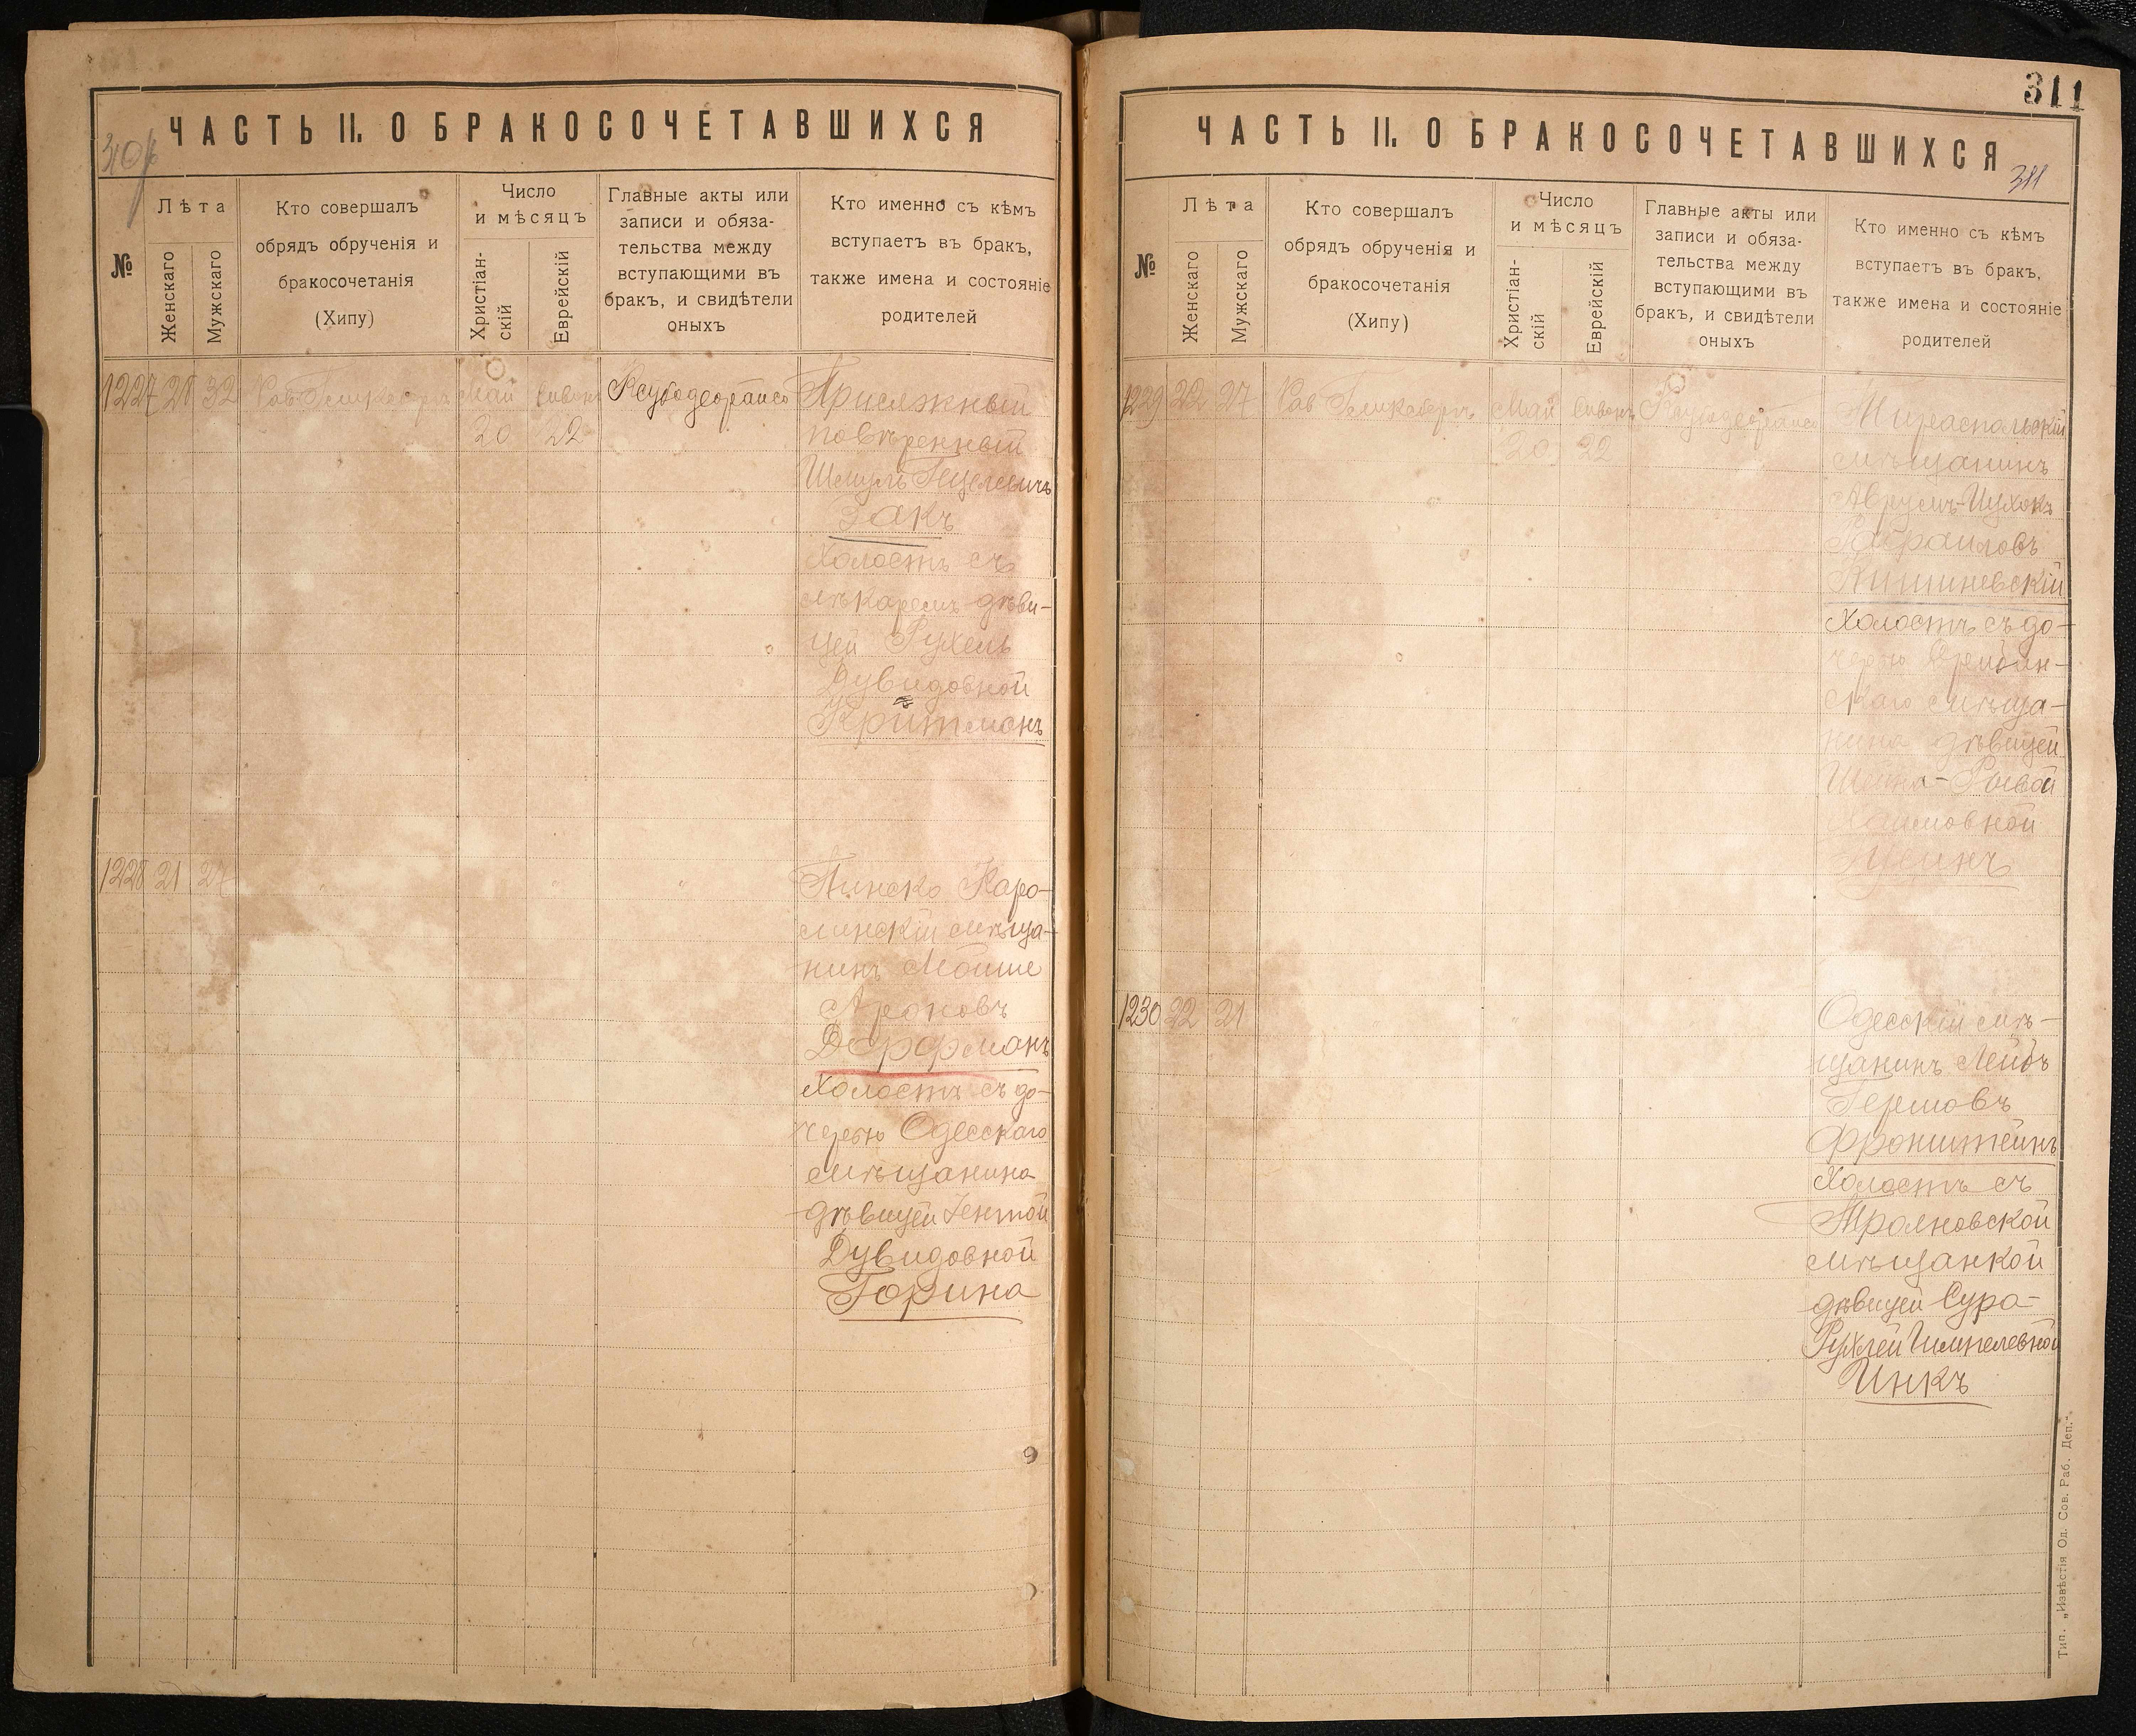 310
ЧАСТЬ II. О БРАКОСОЧЕТАВШИХСЯ
№
Лѣта
Женскаго
Мужскаго
Кто совершалъ
обрядъ обрученія и
бракосочетанія
(Хипу)
Число
и мѣсяцъ
Христіан-
скій
Еврейскій
Главные акты или
записи и обяза-
тельства между
вступающими въ
бракъ, и свидѣтели
оныхъ
Кто именно съ кѣмъ
вступаетъ въ бракъ,
также имена и состояніе
родителей
1227 21 32 Май
20 22
Присяжный
повѣренный
Шмуль
Закъ
Холостъ съ
лѣкаремъ дѣви-
цей Рухель
Дувидовной
Критманъ
1228 21 27
Пинско Каро-
линскій мѣща-
нинъ Мойше
Ароновъ
Дорфманъ
Холостъ съ до-
черью Одесскаго
мѣщанина
дѣвицей Гентой
Дувидовной
Горина
311
ЧАСТЬ II. О БРАКОСОЧЕТАВШИХСЯ
311
№
Лѣта
Женскаго
Мужскаго
Кто совершалъ
обрядъ обрученія и
бракосочетанія
(Хипу)
Число
и мѣсяцъ
Христіан-
скій
Еврейскій
Главные акты или
записи и обяза-
тельства между
вступающими въ
бракъ, и свидѣтели
оныхъ
Кто именно съ кѣмъ
вступаетъ въ бракъ,
также имена и состояніе
родителей
1229 22 27 Рав Май
20 22
Тираспольскій
мѣщанинъ
Аврумъ-Ицхокъ
Кишиневскій
Холостъ съ до-
черью
скаго мѣща-
нина дѣвицей
Шейна-Рывой
Хаимовной
1230 22 21
Одесскій мѣ-
щанинъ Лейбъ
Гершовъ
Фронштейнъ
Холостъ съ
Трояновской
мѣщанкой
дѣвицей Сура-
Рухлей
Инкъ
Тип. „Извѣстія Од. Сов. Раб. Деп.“.